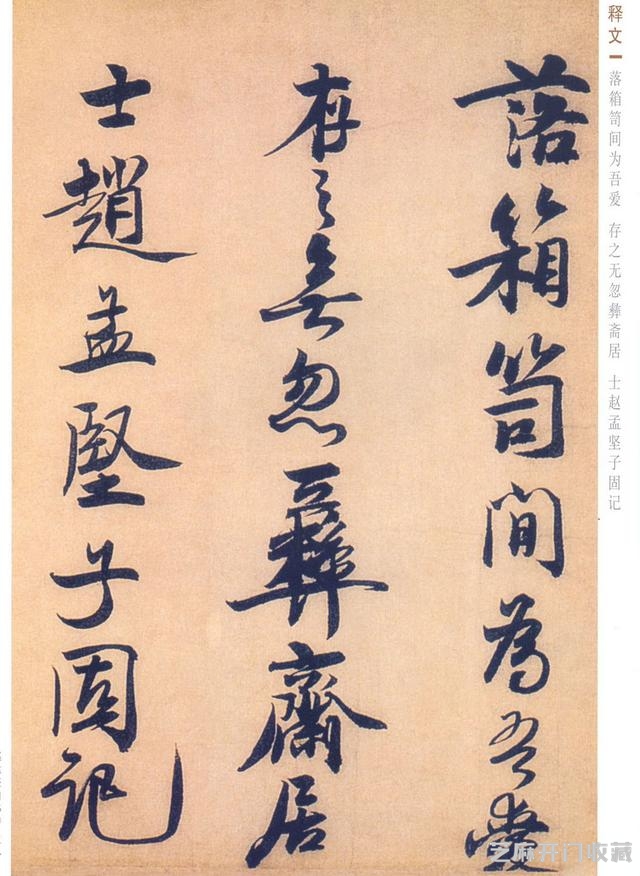 落箱笥間為吾愛
存之無忽彝齋居
士趙孟堅子固記
释文
落箱笥间为吾爱 存之无忽彝斋居 士赵孟坚子固记
芝麻开门收藏